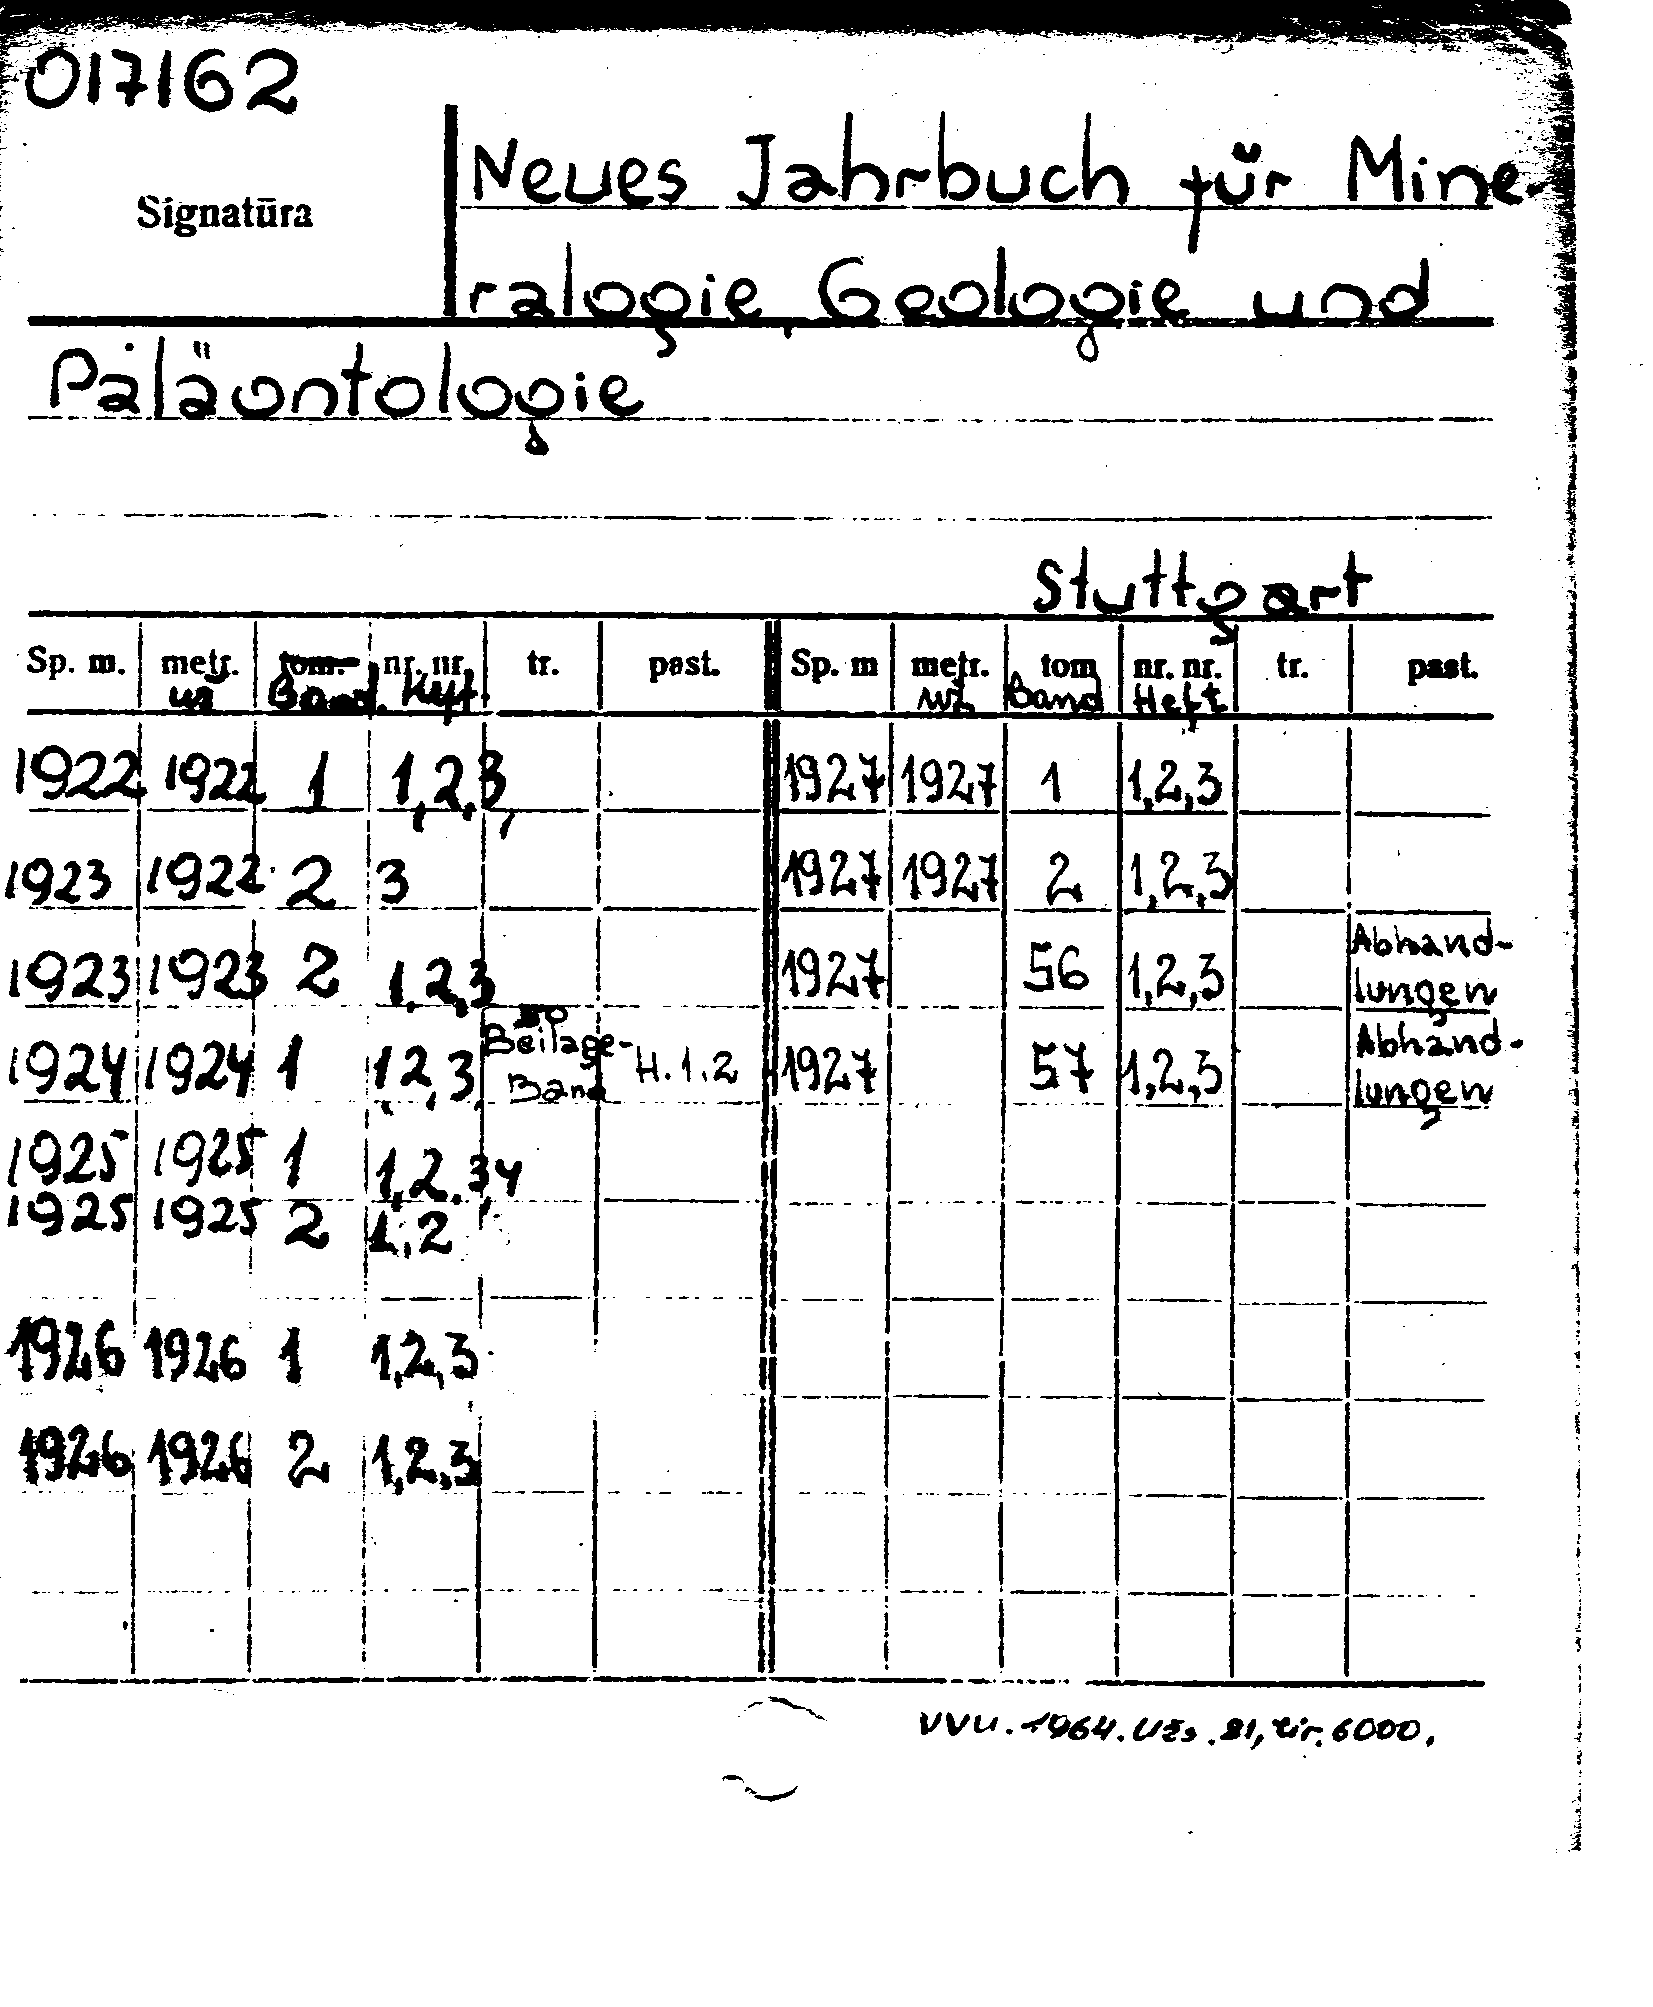 017162
Signatūra
Neues Jahrbuch für Mine-
ralogie, Geologie und
Paläontologie
Stuttgart
Sp. m. metr. tom. nr. nr. tr. past. Sp. m metr. tom nr. nr. tr. past.
uz Band. Heft. uz Band Heft
1922 1922 1 1,2,3, 1927 1927 1 1,2,3
1923 1922 2 3 1927 1927 2 1,2,3
1923 1923 2 1,2,3 1927 56 1,2,3 Abhand-
lungen
50
1924 1924 1 1,2,3, Beilage- H.1.2 1927 57 1,2,3 Abhand-
Band lungen
1925 1925 1 1,2,3,4
1925 1925 2 1,2
1926 1926 1 1,2,3
1926 1926 2 1,2,3
VVU. 1964. Uzs. 81, tir. 6000.